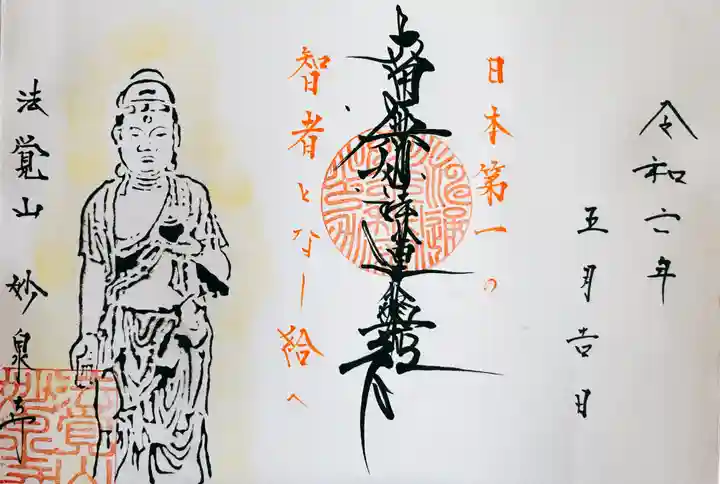 令和六年
五月吉日
日本第一の
南無妙法蓮華経
智者となし給へ
法覚山 妙泉寺